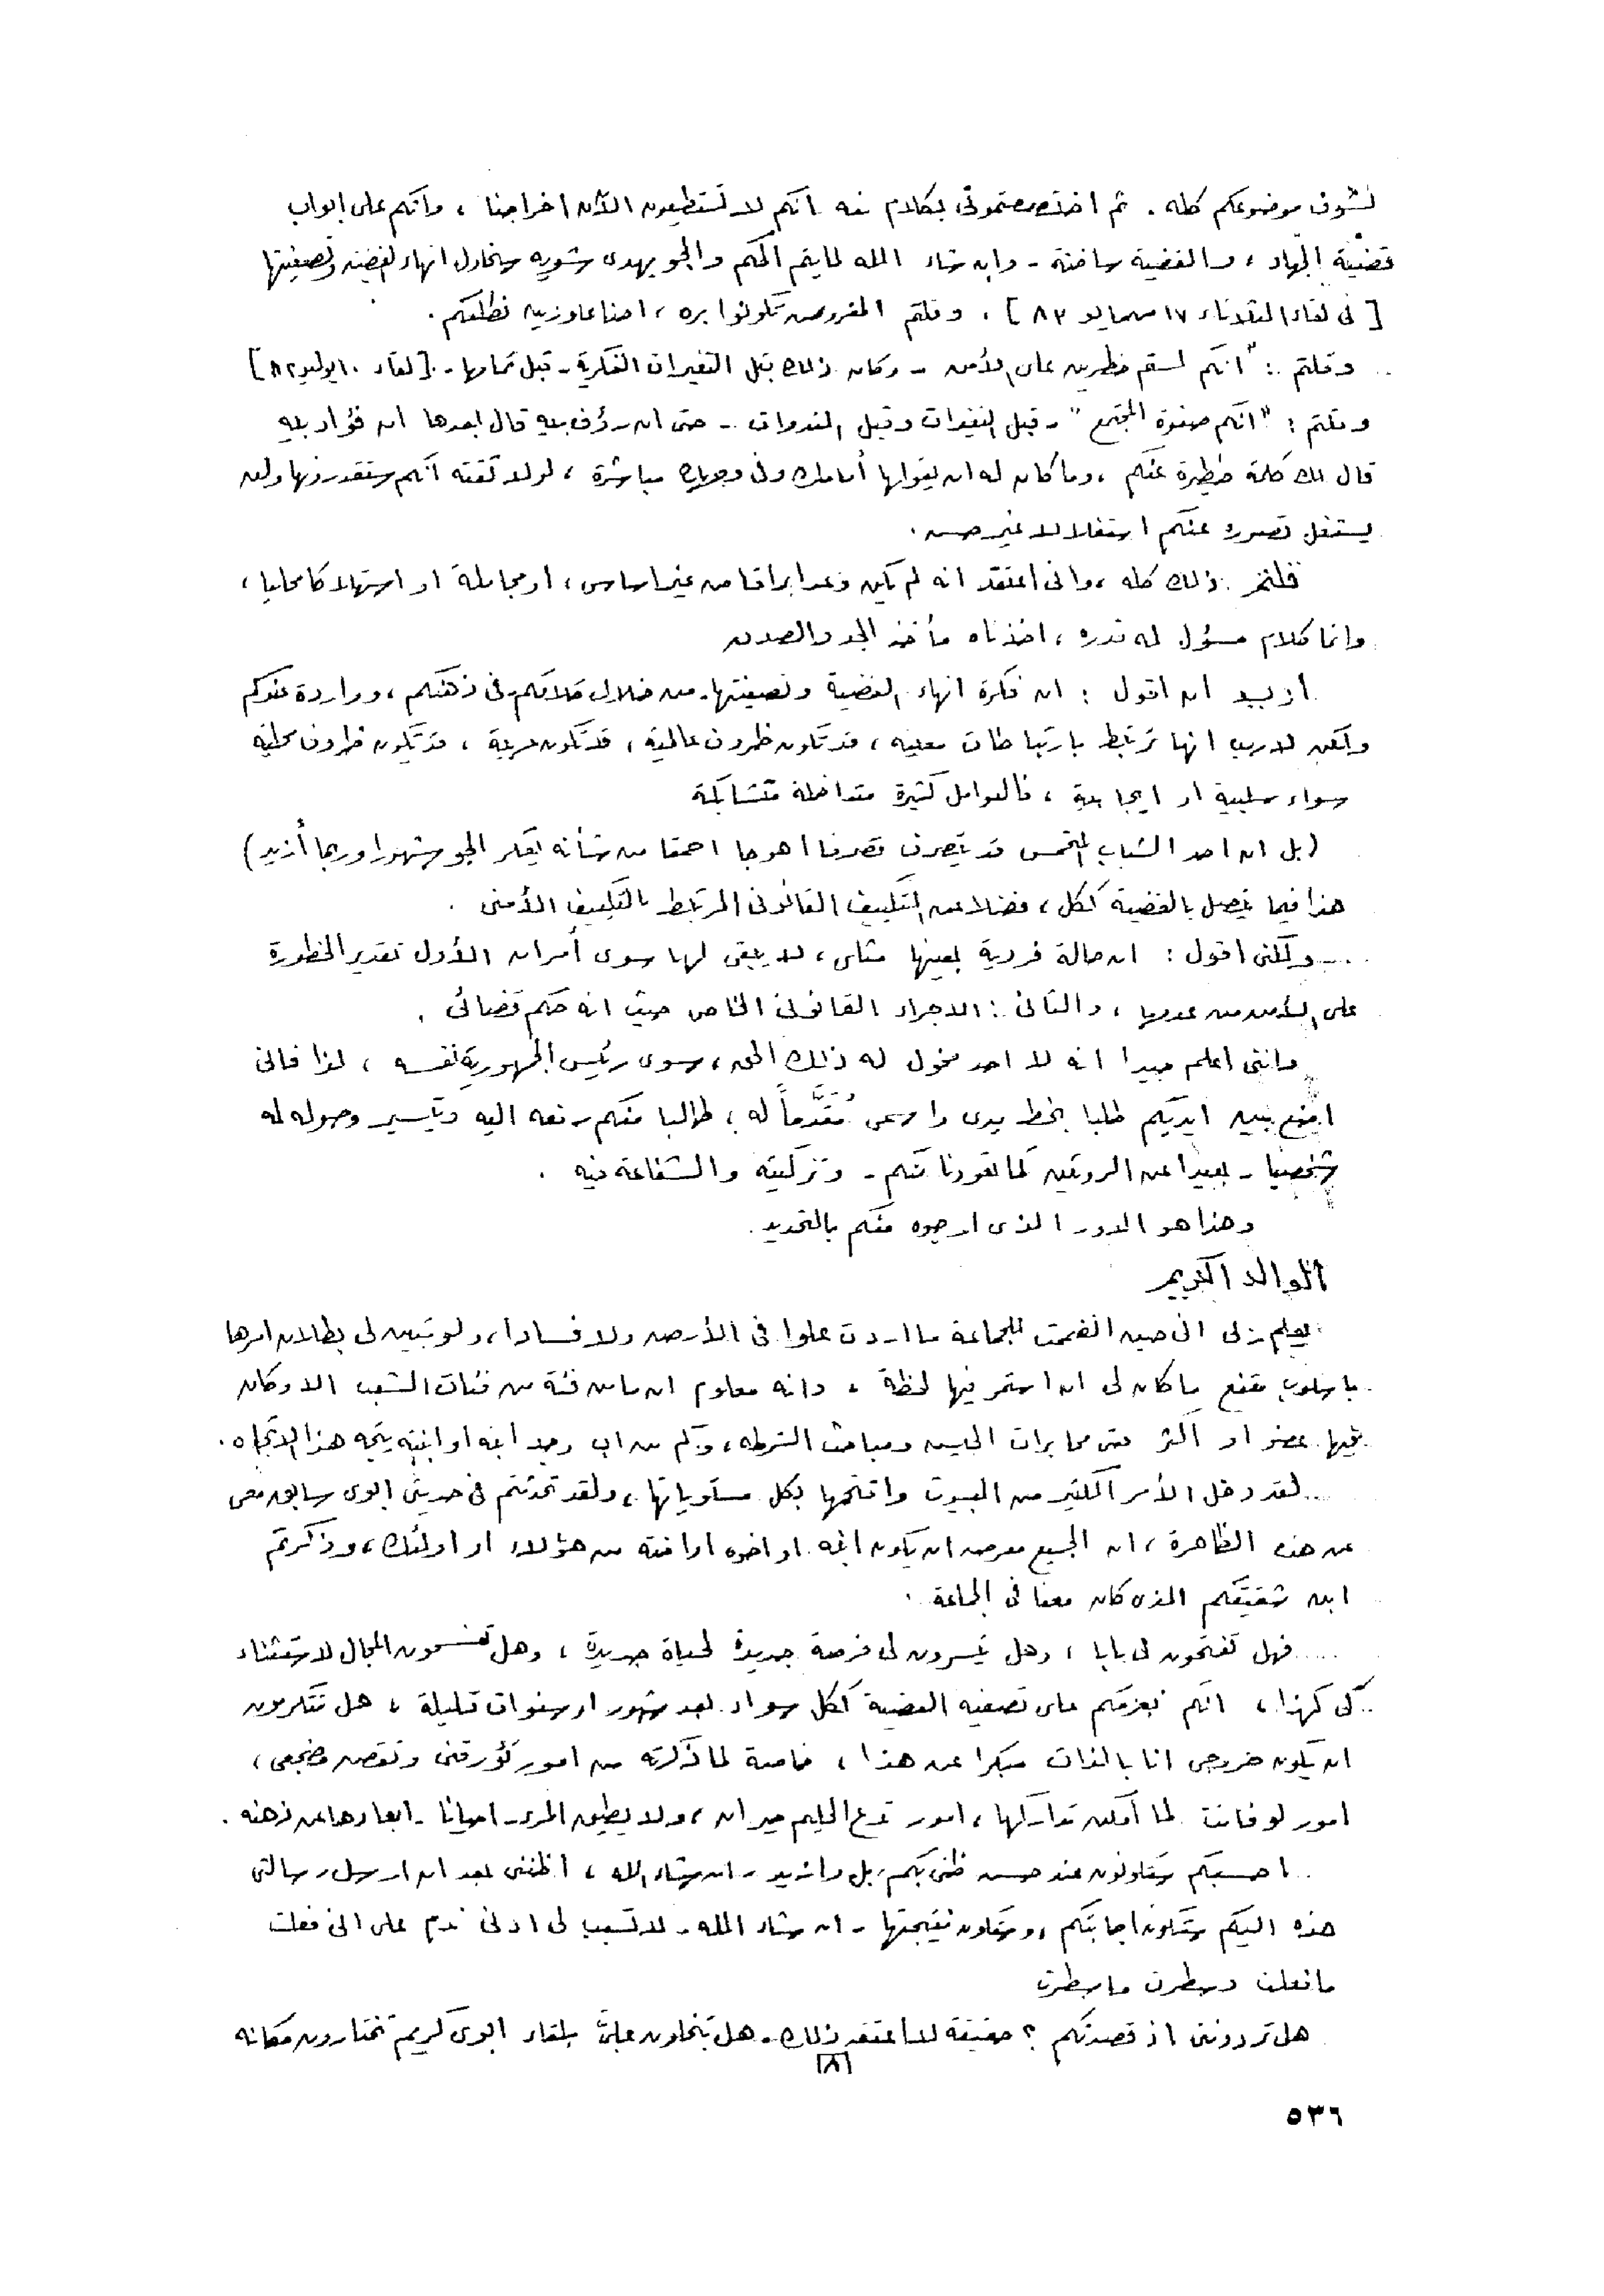 نشوف موضوعكم كله . ثم اختصصتمونى بكلام منه انكم لا تستطيعون الآن اخراجنا ، وانكم على ابواب
قضية الجهاد ، والقضية ساخنة - وان شاء الله لما يتم الحكم والجو يهدى شويه سنحاول انهاء القضية وتصفيتها
[ فى لقاء الثلاثاء ١٧ مايو ٨٣ ] . وقلتم المفروض تكونوا بره ، احنا عاوزين نطلعكم .
وقلتم : " انكم لستم خطرين على الأمن - وكان ذلك قبل التغيرات الفكرية - قبل تمامها - [ لقاء ١٠ يوليو ٨٢ ]
وقلتم : " انكم صفوة المجتمع " - قبل التغيرات وقبل الندوات - حتى ان رؤف بيه قال بعدها ان فؤاد بيه
قال لك كلمة خطيرة عنكم ، وما كان له ان يقولها أمامك وفى وجهك مباشرة ، لولا ثقته انكم ستقدرونها ولن
يستغل تصوره عنكم استغلالا غير حسن .
فلنخر ذلك كله ، وانى اعتقد انه لم يكن وعدا براقا من غير اساس ، او مجاملة او استهلاكا محليا ،
وانما كلام مسؤل له قدره ، اخذناه مأخذ الجد والصدق
أريد ان اقول : ان فكرة انهاء القضية وتصفيتها - من خلال كلامكم - فى ذهنكم ، وواردة عندكم
ولكن لا ريب انها ترتبط بارتباطات معينه ، قد تكون ظروف عالمية ، قد تكون عربية ، قد تكون ظروف محلية
سواء سلبية او ايجابية ، فالعوامل كثيرة متداخلة متشابكة
( بل ان احد الشباب المتحمس قد يتصرف تصرفا اهوجا احمقا من شأنه يعكر الجو شهورا وربما أزيد )
هذا فيما يتصل بالقضية ككل ، فضلا عن التكييف القانونى المرتبط بالتكييف الأمنى .
... ولكنى اقول : ان حالة فردية بعينها مثلى ، لا يبقى لها سوى أمران الأول تقدير الخطورة
على الأمن من عدمها ، والثانى : الاجراء القانونى الخاص حيث انه حكم قضائى .
وانى اعلم جيدا انه لا احد مخول له ذلك الحق ، سوى رئيس الجمهورية نفسه ، لذا فانى
اضع بين ايديكم طلبا بخط يدى واسمى مُقَدَّماً له ، طالبا منكم رفعه اليه وتيسير وصوله له
شخصيا - بعيدا عن الروتين كما تعودنا منكم - وتزكيته والشفاعة فيه .
وهذا هو الدور الذى ارجوه منكم بالتحديد .
الوالد الكريم
يعلم ربى انى حين انضممت للجماعة ما اردت علوا فى الأرض ولا فسادا ، ولو تبين لى بطلان امرها
باسلوب مقنع ما كان لى ان استمر فيها لحظة ، وانه معلوم ان ما من فئة من فئات الشعب الا وكان
فيها عضو او اكثر حتى مخابرات الجيش ومباحث الشرطه ، وكم من اب وجد ابنه او ابنته يتجه هذا الاتجاه .
... لقد دخل الأمر الكثير من البيوت واقتحمها بكل مستوياتها ، ولقد تحدثتم فى حديث ابوى سابق معى
عن هذه الظاهرة ، ان الجميع معرض ان يكون ابنه او اخوه او اخته من هؤلاء او اولئك ، وذكرتم
ابن شقيقكم الذى كان معنا فى الجماعة .
..... فهل تفتحون لى بابا ، وهل تيسرون لى فرصة جديدة لحياة جديدة ، وهل تفسحون المجال لاستثناء
كى كهذا ، انكم بعزمكم على تصفيه القضية ككل سواء بعد شهور او سنوات قليلة ، هل تتكرمون
ان يكون خروجى انا بالذات مبكرا عن هذا ، خاصة لما ذكرته من امور تؤرقنى وتقض مضجعى ،
امور لو فاتت لما أمكن تداركها ، امور تدع الحليم حيران ، ولا يطيق المرء - احيانا - ابعادها عن ذهنه .
.. احسبكم ستكونون عند حسن ظنى بكم ، بل وازيد - ان شاء الله ، اظننى بعد ان ارسل رسالتى
هذه اليكم ستكون اجابتكم ، وستكون نتيجتها - ان شاء الله - لا تسبب لى ادنى ندم على انى فعلت
ما فعلت وسطرت ما سطرت
هل تردوننى اذ قصدتكم ؟ حقيقة لا اعتقد ذلك - هل تبخلون علىّ بلقاء ابوى كريم تختارون مكانه
[٨]
٥٣٦